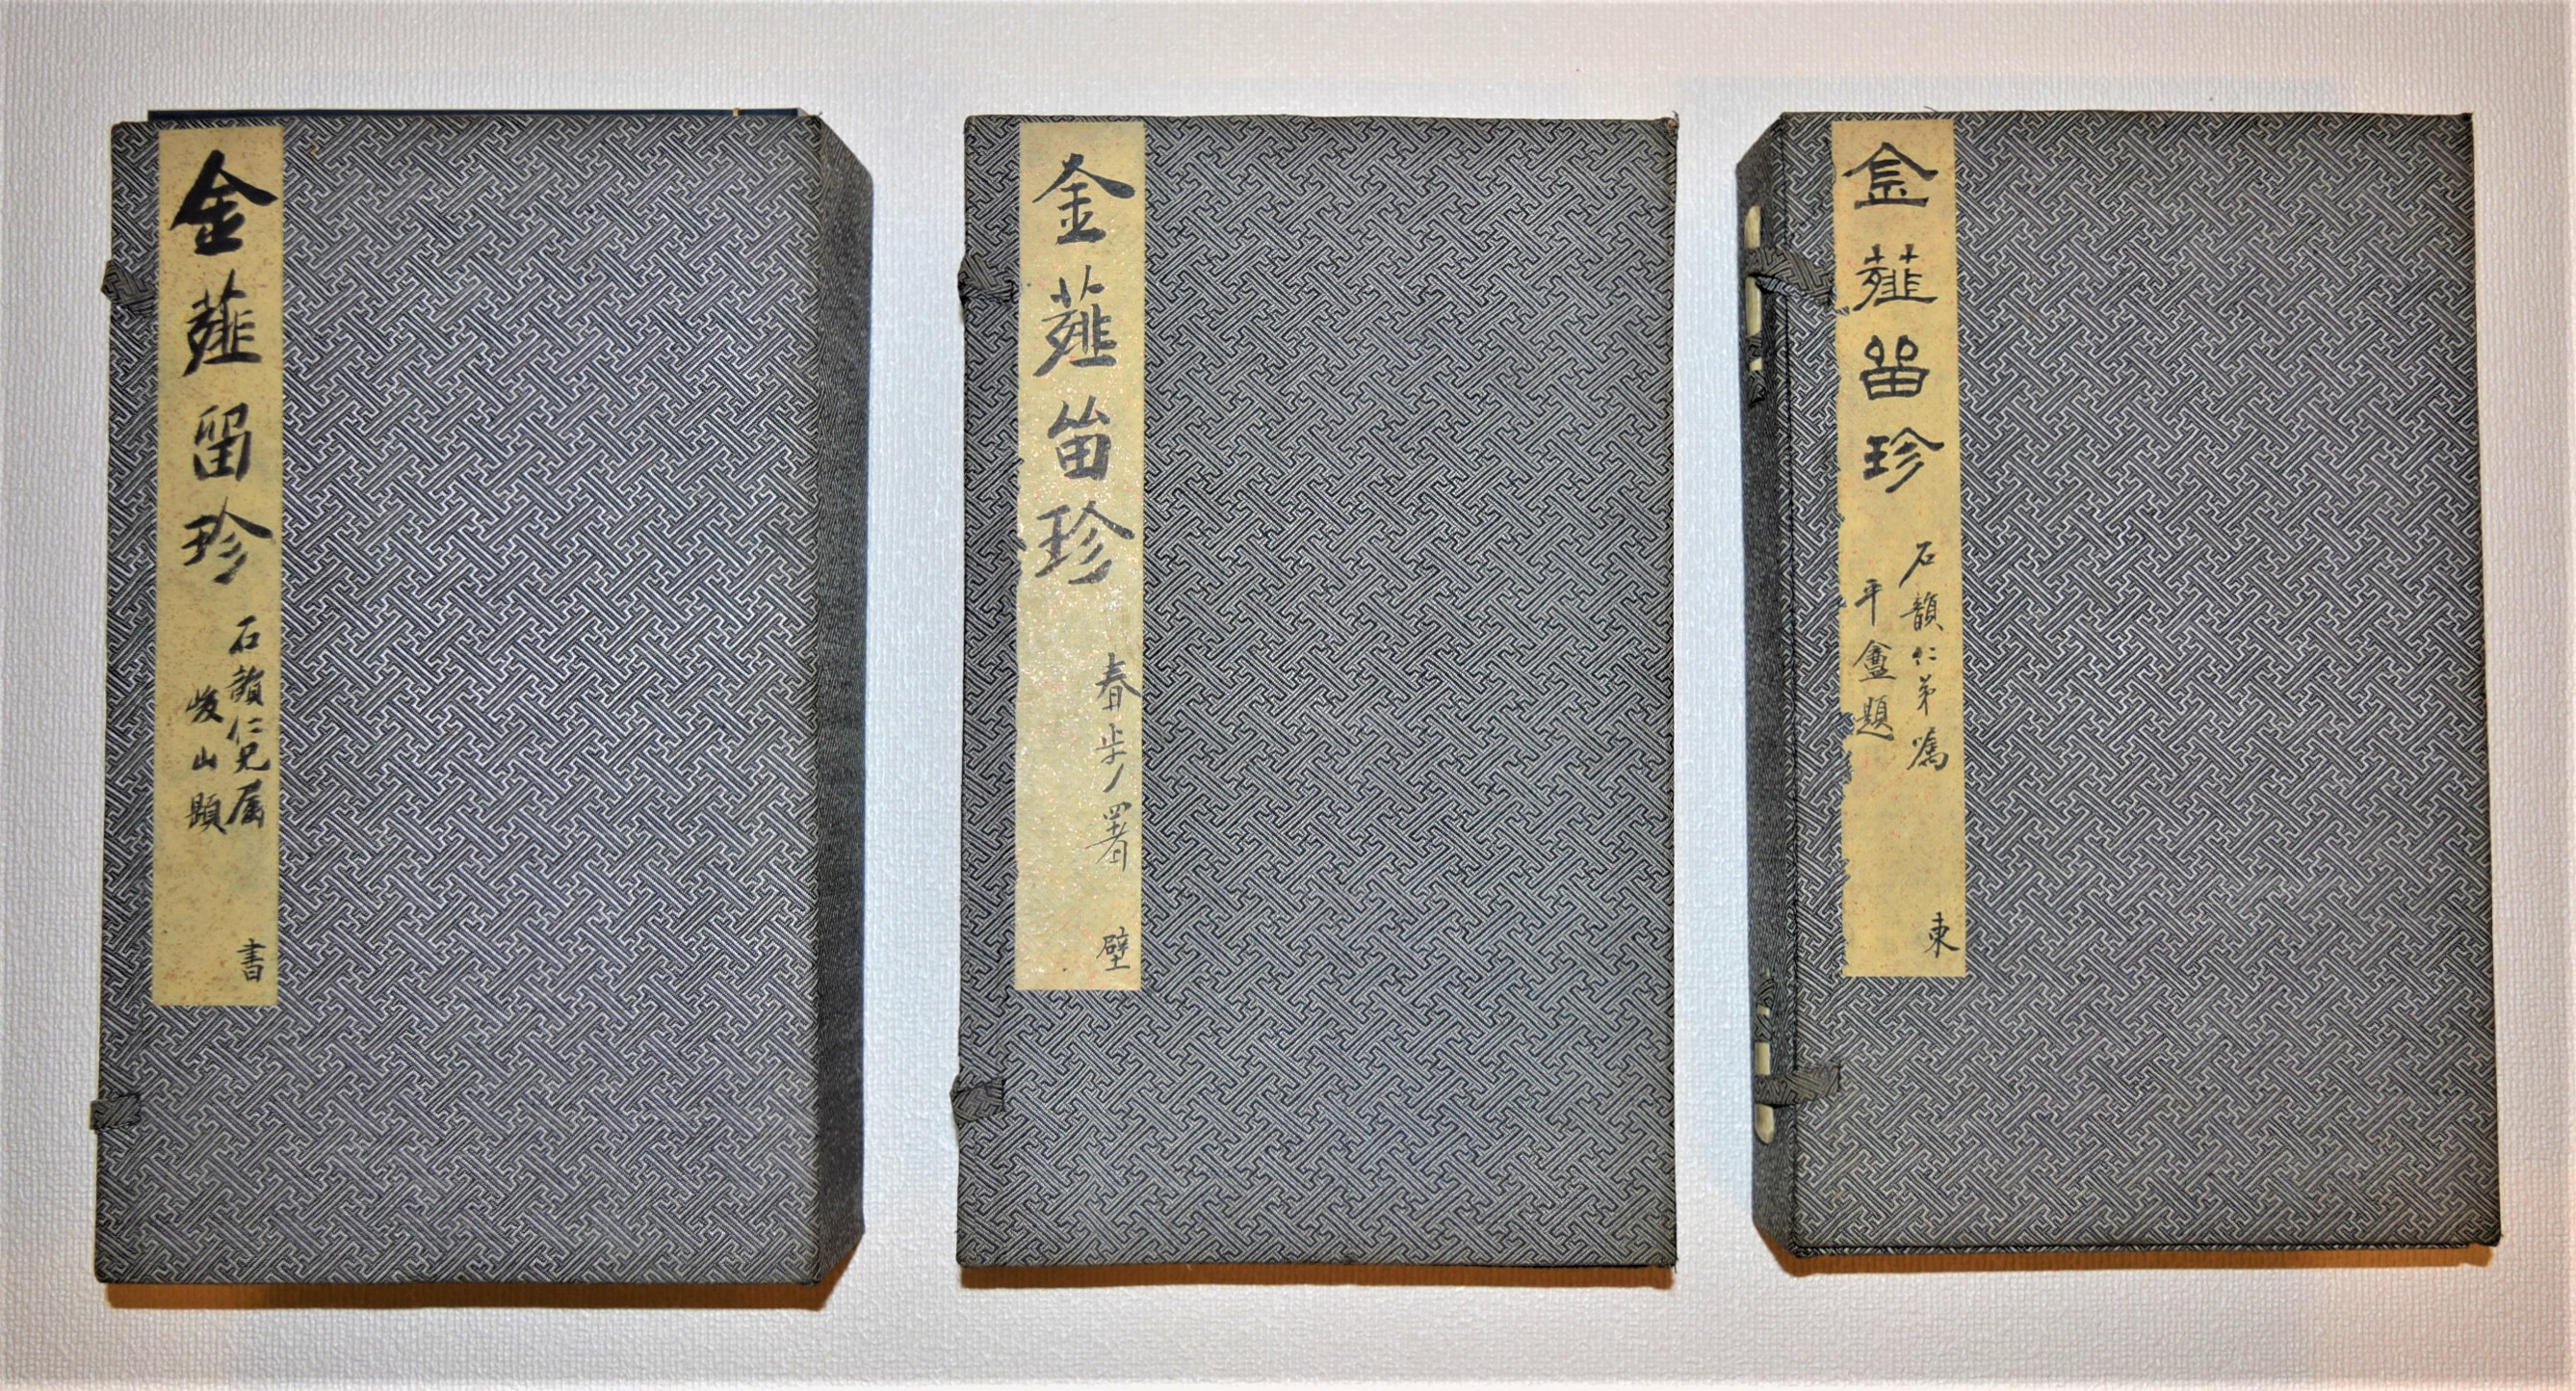 金薤畱珍
石韻仁弟囑
平盦題
東
金薤留珍
春步署
壁
金薤留珍
石韻仁兄属
峻山題
書